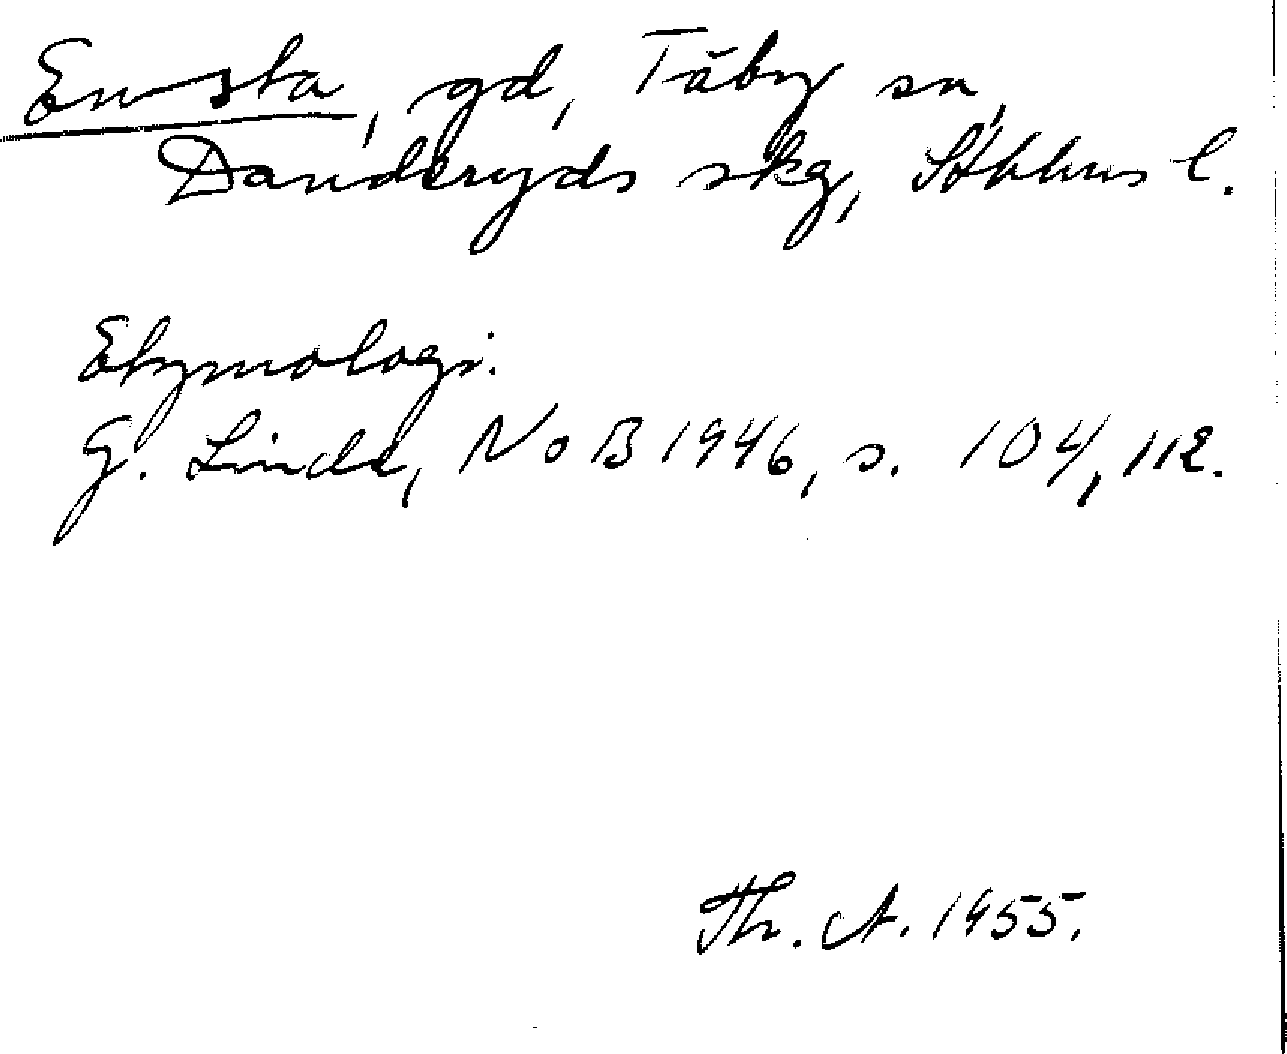 Ensta, gd, Täby sn,
Danderyds skg, Sthlms l.
Etymologi.
G. Linde, NoB 1946, s. 104, 112.
Th. A. 1955.